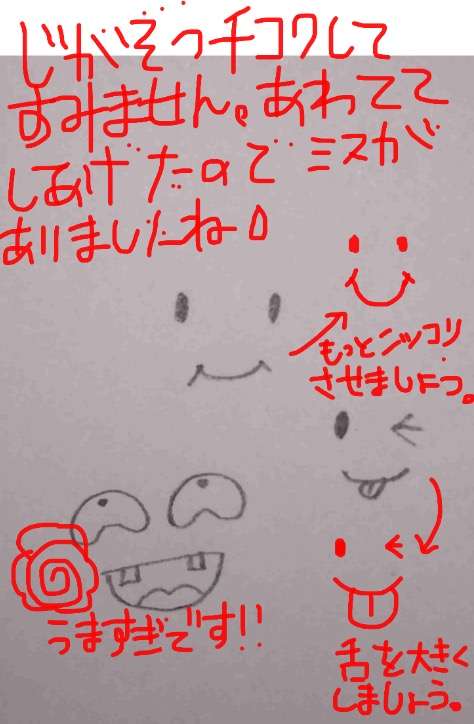 じがぞうチコクして
すみません。あわてて
しあげたのでミスが
ありましたね!
もっとニッコリ
させましょう。
うますぎです!!
舌を大きく
しましょう。